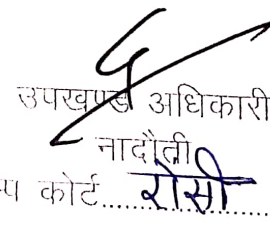 उपखण्ड अधिकारी
नादौती
प कोर्ट..........रोसी